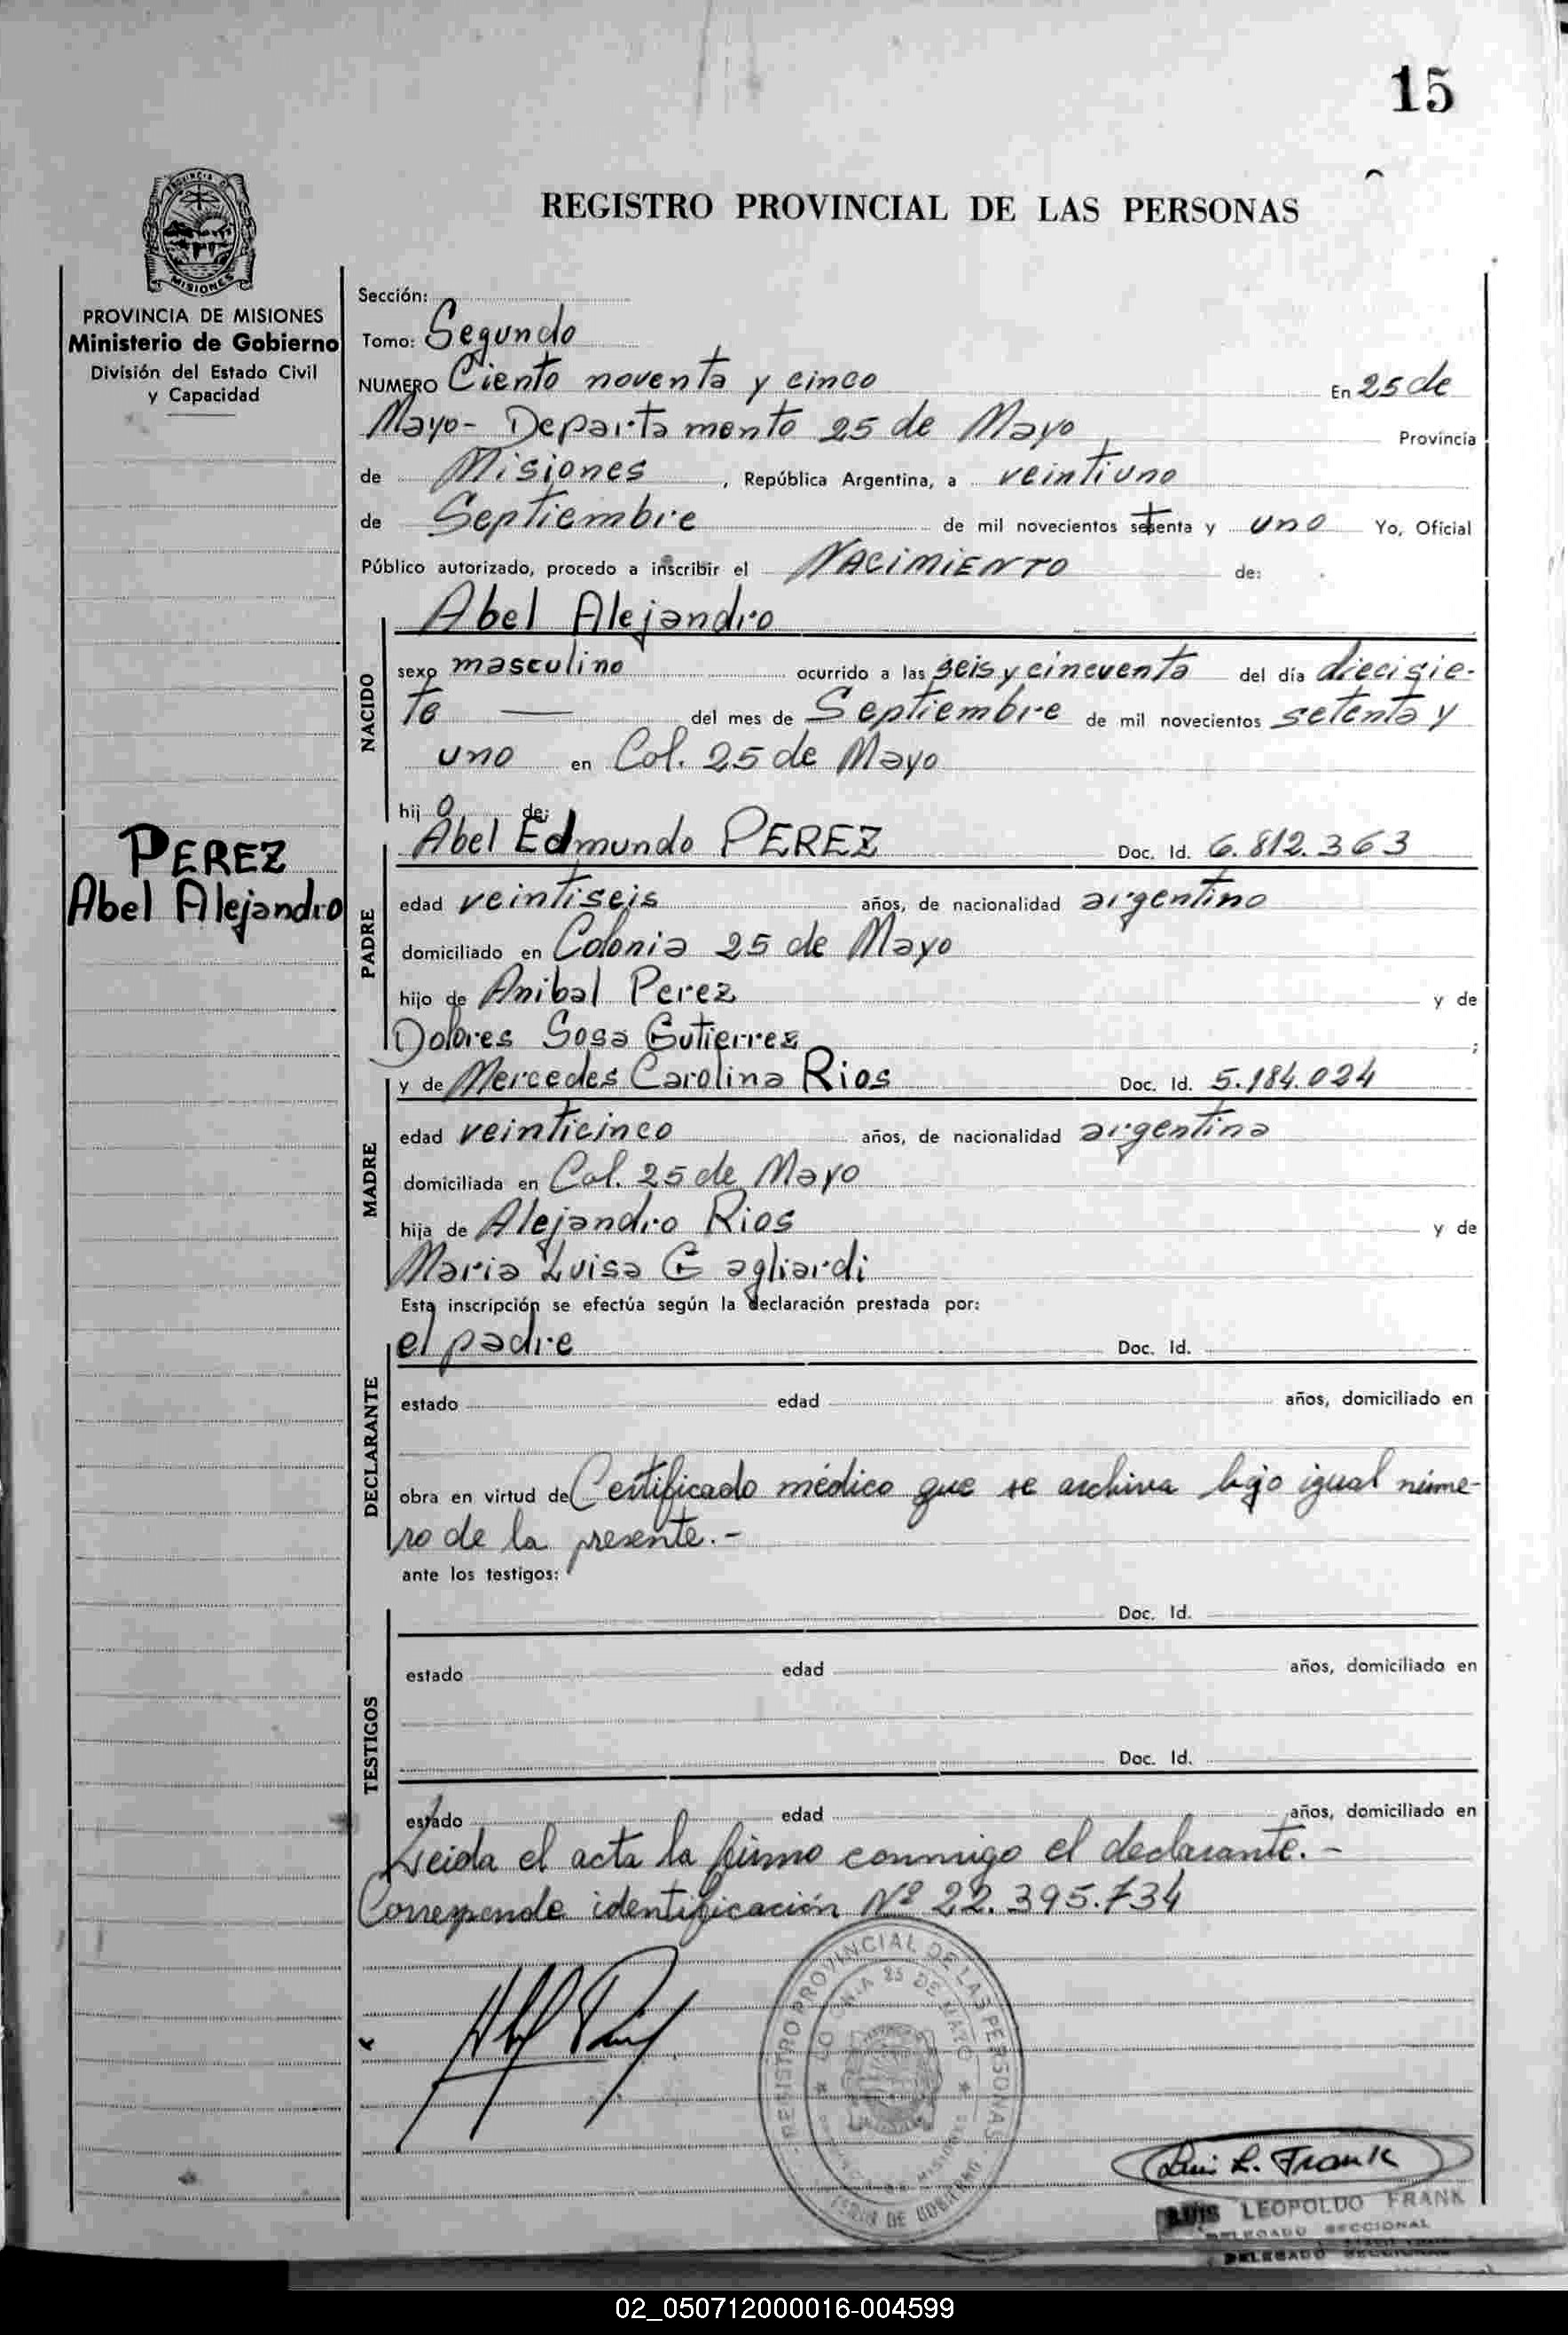 15
REGISTRO PROVINCIAL DE LAS PERSONAS
MISIONES
PROVINCIA DE MISIONES
Ministerio de Gobierno
División del Estado Civil
y Capacidad
PEREZ
Abel Alejandro
Sección:
Tomo: Segundo
NUMERO Ciento noventa y cinco En 25 de
Mayo- Departamento 25 de Mayo, Provincia
de Misiones, República Argentina, a veintiuno
de Septiembre de mil novecientos setenta y uno Yo, Oficial
Público autorizado, procedo a inscribir el NACIMIENTO de:
Abel Alejandro
NACIDO
sexo masculino ocurrido a las seis y cincuenta del día diecisie-
te — del mes de Septiembre de mil novecientos setenta y
uno en Col. 25 de Mayo
hijo de:
Abel Edmundo PEREZ Doc. Id. 6.812.363
PADRE
edad veintiseis años, de nacionalidad argentino
domiciliado en Colonia 25 de Mayo
hijo de Anibal Perez y de
Dolores Sosa Gutierrez;
y de Mercedes Carolina Rios Doc. Id. 5.184.024
MADRE
edad veinticinco años, de nacionalidad argentina
domiciliada en Col. 25 de Mayo
hija de Alejandro Rios y de
Maria Luisa Gagliardi
Esta inscripción se efectúa según la declaración prestada por:
el padre Doc. Id.
DECLARANTE
estado edad años, domiciliado en
obra en virtud de Certificado médico que se archiva bajo igual núme-
ro de la presente.-
ante los testigos:
Doc. Id.
TESTIGOS
estado edad años, domiciliado en
Doc. Id.
estado edad años, domiciliado en
Leida el acta la firmo conmigo el declarante.-
Corresponde identificación Nº 22.395.734
REGISTRO PROVINCIAL DE LAS PERSONAS
COLONIA 25 DE MAYO
Luis L. Frank
LUIS LEOPOLDO FRANK
DELEGADO SECCIONAL
DELEGADO SECCIONAL
02_050712000016-004599